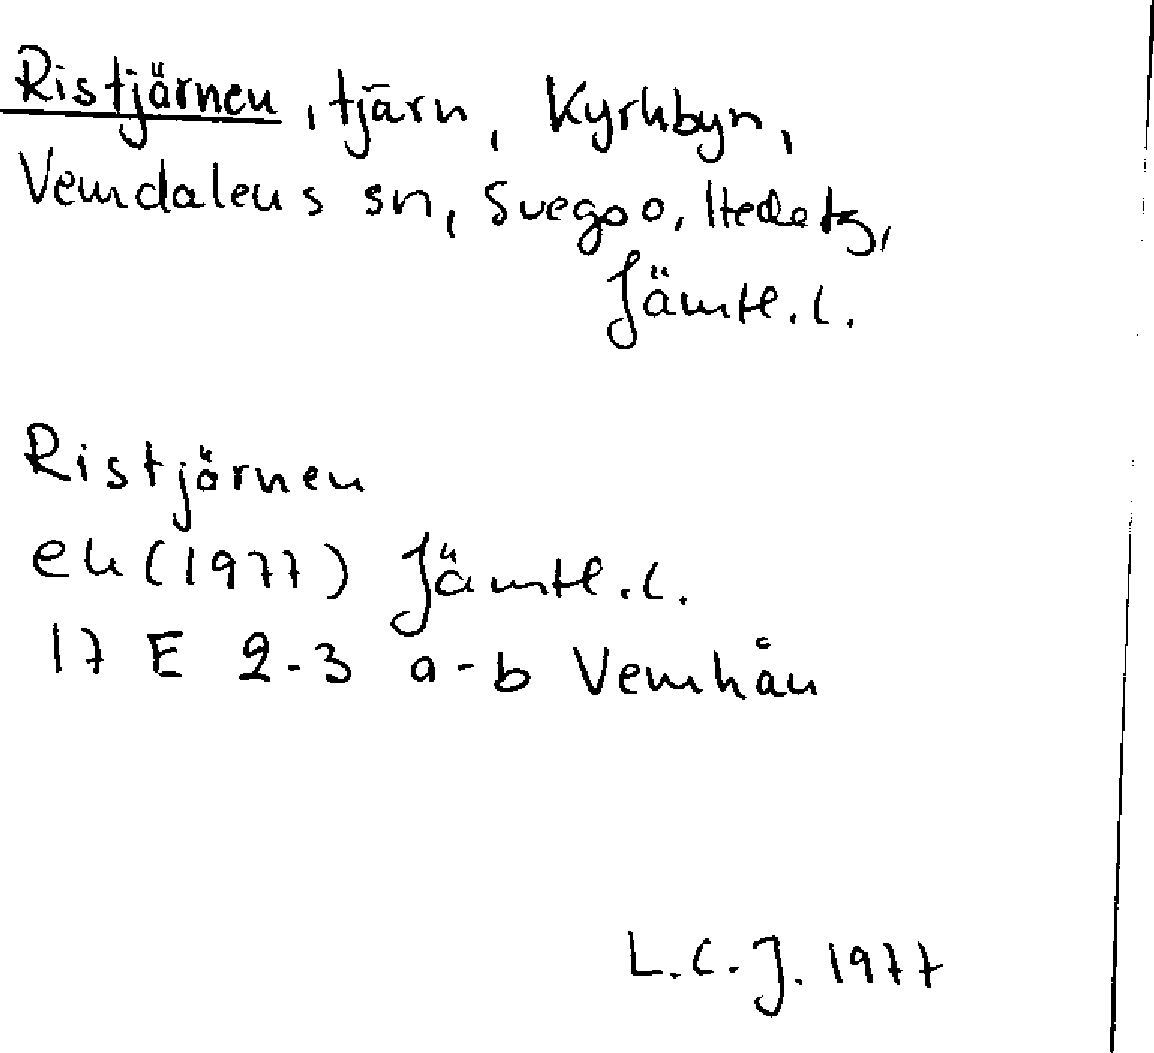 Ristjärnen, tjärn, Kyrkbyn,
Vemdalens sn, Svegs o. Hede tg,
Jämtl. l.
Ristjärnen
ek (1977) Jämtl. l.
17 E 2-3 a-b Vemhån
L.C.J. 1977